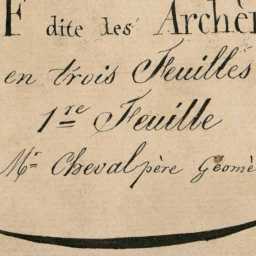 F dite des Archè
en trois Feuilles
1re Feuille
Mr Cheval père Géomè